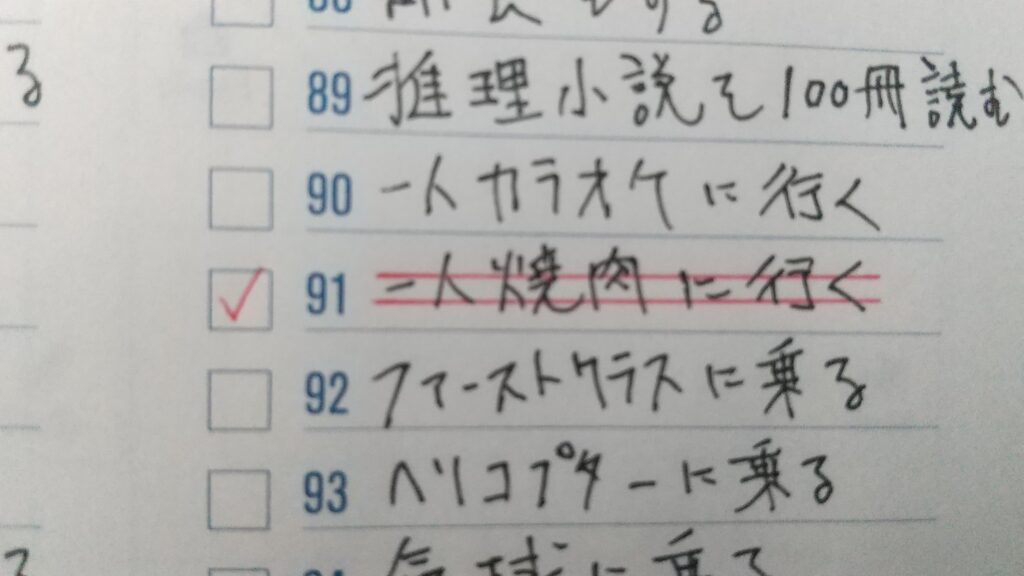 る
89 推理小説を100冊読む
90 一人カラオケに行く
91 一人焼肉に行く
92 ファーストクラスに乗る
93 ヘリコプターに乗る
気球に乗る